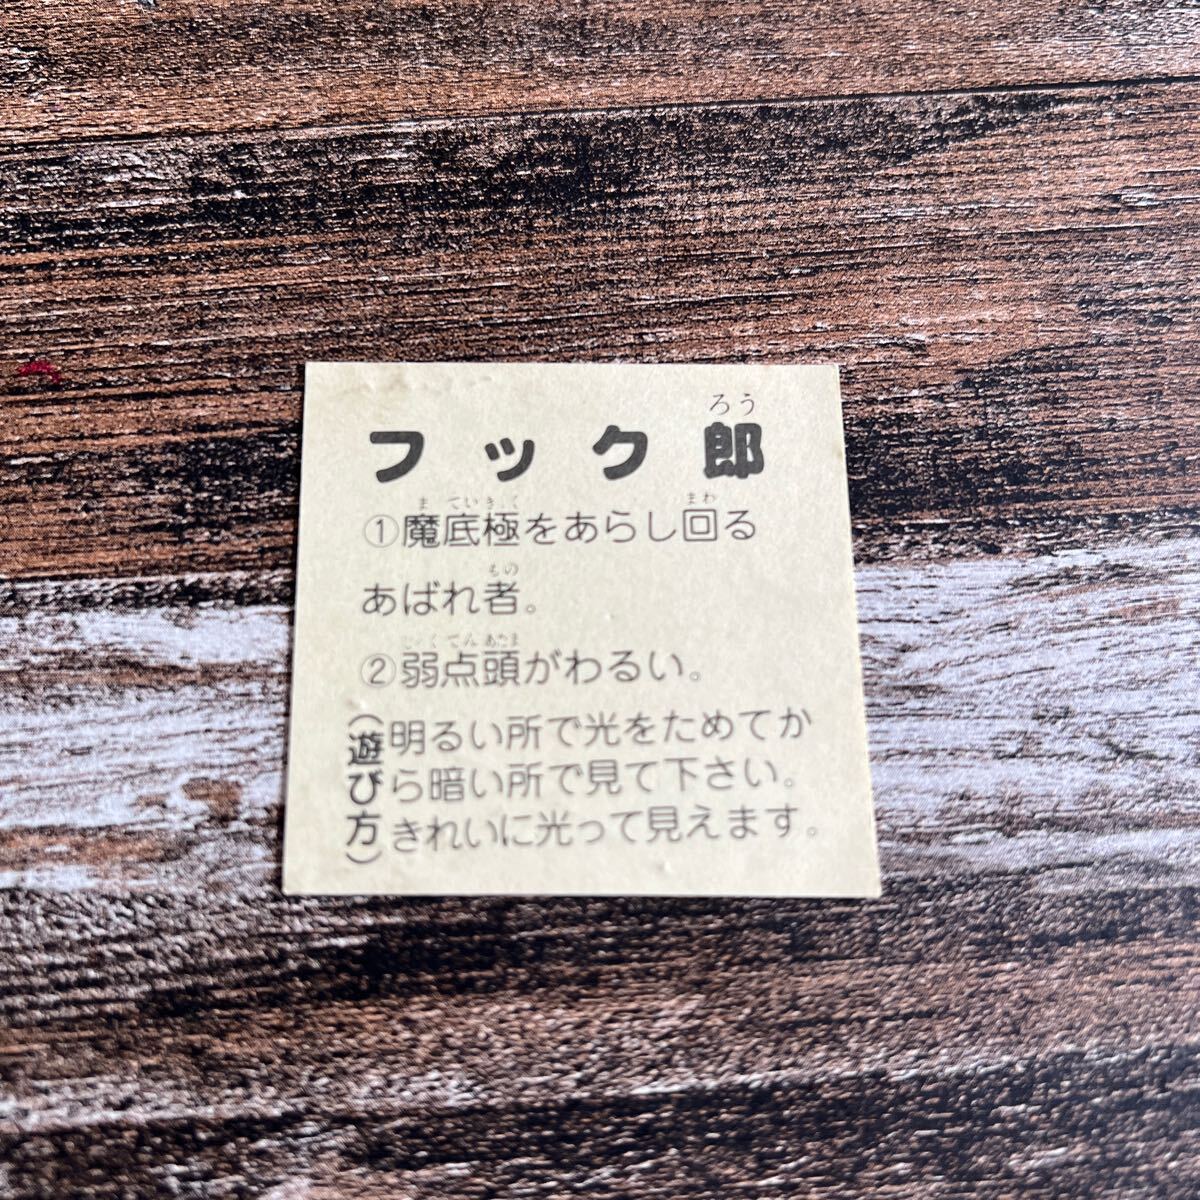 フック郎
ろう
①魔底極をあらし回る
ま ていきく まわ
あばれ者。
もの
②弱点頭がわるい。
てん あたま
(遊び方)
明るい所で光をためてか
ら暗い所で見て下さい。
きれいに光って見えます。